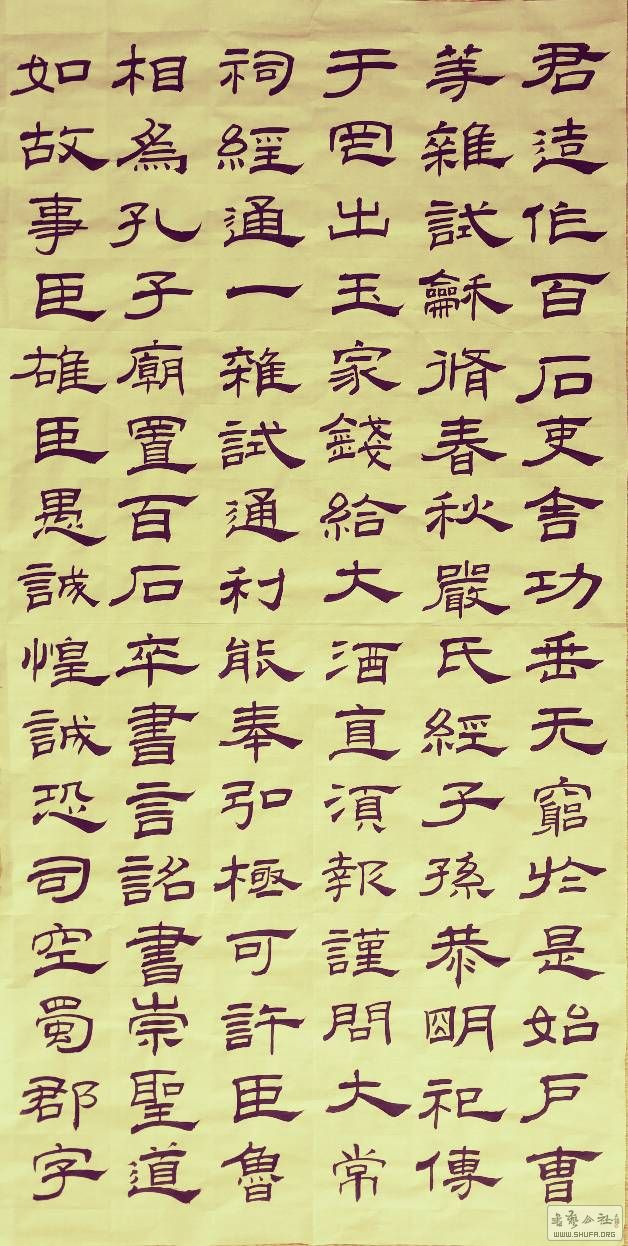 君造作百石吏舍功垂无窮於是始戶曹
等雜試龢脩春秋嚴氏經子孫恭朙祀傳
于罔出玉家錢給大酒直須報謹問大常
祠經通一雜試通利能奉弘極可許臣魯
相爲孔子廟置百石卒書言詔書崇聖道
如故事臣雄臣愚誠惶誠恐司空蜀郡字
WWW.SHUFA.ORG